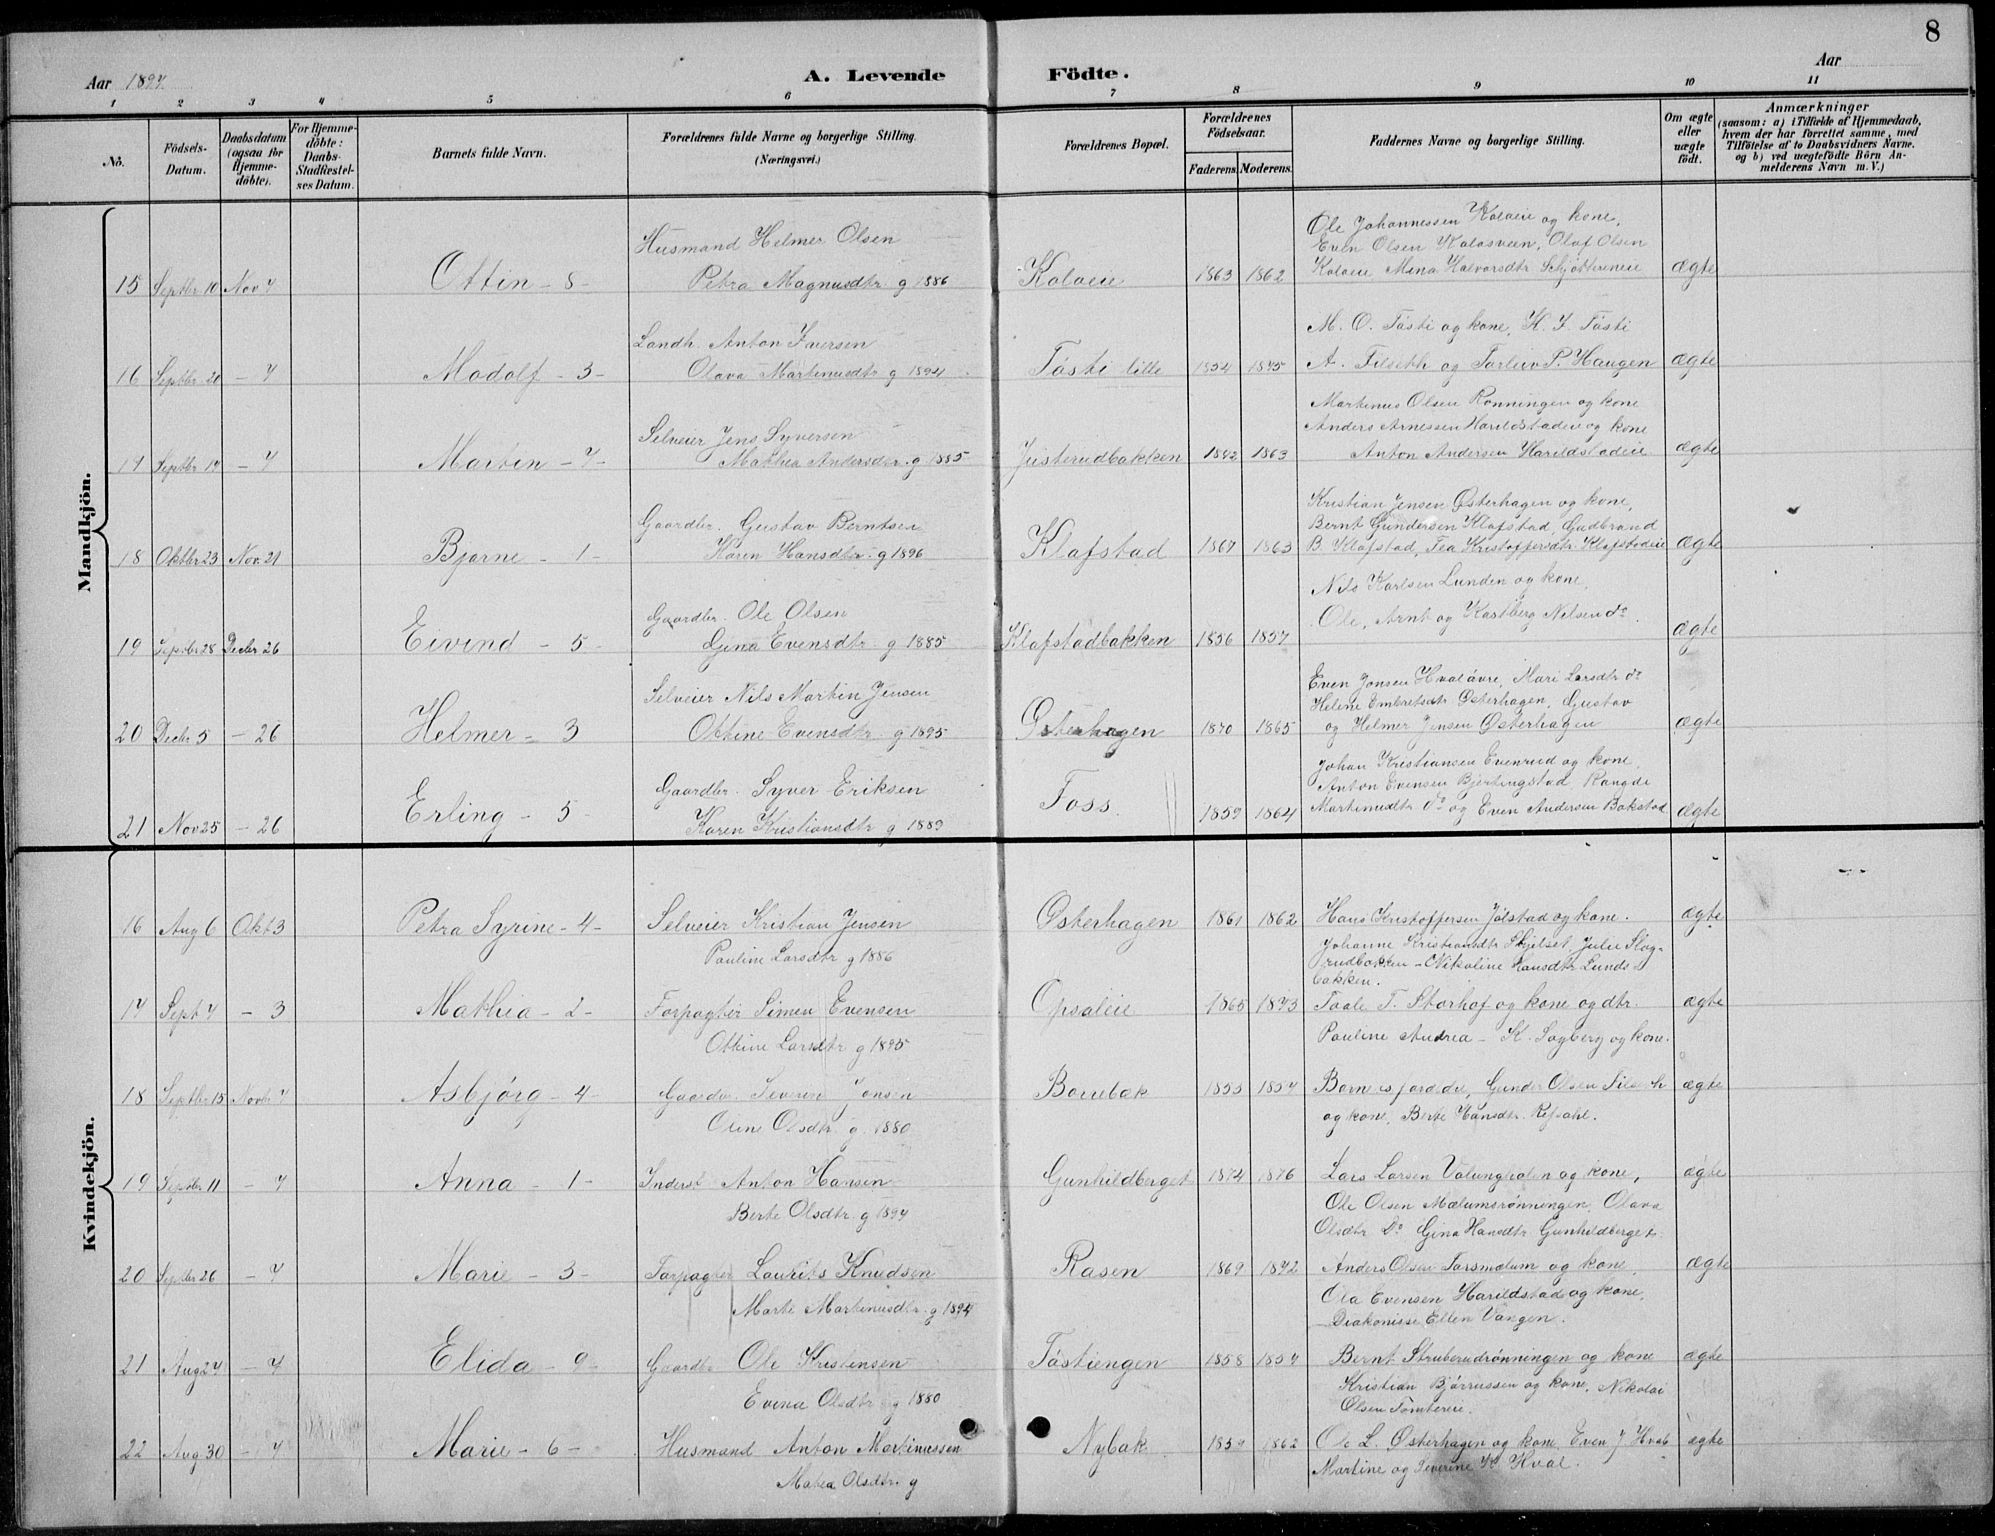 8
Aar 1897. A. Levende Födte. Aar
1 2 3 4 5 6 7 8 9 10 11
No.
Födsels-Datum.
Daabsdatum (ogsaa for Hjemme-döbte).
For Hjemme-döbte: Daabs-Stadfæstel-ses Datum.
Barnets fulde Navn.
Forældrenes fulde Navne og borgerlige Stilling. (Næringsvei.)
Forældrenes Bopæl.
Forældrenes Födselsaar.
Faderens. Moderens.
Faddernes Navne og borgerlige Stilling.
Om ægte eller uægte födt.
Anmærkninger
(saasom: a) i Tilfælde af Hjemmedaab,
hvem der har forrettet samme, med
Tilföielse af to Daabsvidners Navne.
og b) ved uægtefödte Börn An-
melderens Navn m. V.)
Mandkjön.
Husmand Helmer Olsen
Ole Johannessen Kolaeie og kone,
Even Olsen Kolosveen, Olaf Olsen
15 Septbr 10 Nov 7 Ottin - 8 - Petra Magnusdtr. g 1886 Kolaeie 1863 1862 Kolaeie Mina Halvorsdtr ægte
Landh. Anton Iversen
M. O. Tösti og kone, K. J. Tösti
16 Septbr 20 - 7 Modolf - 3 - Olava Martinusdtr g 1894 Tösti lille 1854 1875 A. Filseth og Torleiv P. Haugen ægte
Selveier Jens Syversen
Martinus Olsen Rønningen og kone
Anders Arnessen Harildstadeie og kone
17 Septbr 14 - 7 Martin - 7 - Mathea Andersdtr. g 1885 Justerudbakken 1842 1863 Anton Andersen Harildstadeie ægte
Gaardbr. Gustav Berntsen
Kristian Jensen Østerhagen og kone,
Bernt Gundersen Klafstad Gudbrand
18 Oktbr 23 Nov. 21 Bjarne - 1 - Karen Hansdtr. g 1896 Klafstad 1867 1863 B. Klafstad, Tea Kristoffersdtr. Klafstadeie ægte
Gaardbr. Ole Olsen
Nils Karlsen Lunden og kone,
Ole, Arnt og Kastberg Nilsen do.
19 Septbr 28 Decbr 26 Eivind - 5 - Gina Evensdtr. g 1885 Klafstadbakken 1856 1857 ægte
Selveier Nils Martin Jensen
Even Jonsen Hvaløvre, Mari Larsdtr do
Helene Embretsdtr Østerhagen, Gustav
20 Decbr 5 - 26 Helmer - 3 Ottine Evensdtr. g 1895 Østerhagen 1870 1865 og Helmer Jensen Østerhagen ægte
Gaardbr. Syver Eriksen
Johan Kristiansen Evenrud og kone,
Anton Evensen Bjertingstad, Rangdi
21 Nov 25 - 26 Erling - 5 - Karen Kristiansdtr g 1889 Foss 1859 1864 Martinusdtr do og Even Andersen Bakstad ægte
Kvindekjön.
16 Aug 6 Okt 3 Petra Syrine - 4 - Selveier Kristian Jensen Østerhagen 1861 1862 Hans Kristoffersen Jølstad og kone. ægte
Pauline Larsdtr g 1886
Johanne Kristiansdtr Skjelset, Julie Slag-
rudbakken - Nikoline Hansdtr Lunds-
bakken.
17 Sept 7 - 3 Mathea - 2 - Forpagter Simen Evensen Opsaleie 1865 1873 Taale T. Storhof og kone og dtr. ægte
Ottine Larsdtr g 1895 Pauline Andrea - K. Sagberg og kone.
18 Septbr 15 Novbr 7 Asbjørg - 4 - Gaardbr. Severin Jonsen Bonnebak 1855 1854 Barnets forældre, Gunder Olsen ægte
Oline Olsdtr. g. 1880 og kone, Berte Hansdtr. Refsahl.
19 Septbr 11 - 7 Anna - 1 - Inderst Anton Hansen Gunhildberget 1874 1876 Lars Larsen og kone, ægte
Berte Olsdtr. g 1897 Ole Olsen Mælumsrønningen, Olava
Olsdtr Do Gina Hansdtr Gunhildberget.
20 Septbr 26 - 7 Marie - 3 - Forpagter Laurits Knudsen Rasen 1869 1872 Anders Olsen Torsmælum og kone, ægte
Marte Martinusdtr. g 1894 Ola Evensen Harildstad og kone,
Diakonisse Ellen Vangen.
21 Aug 24 - 7 Elida - 9 - Gaardbr Ole Kristensen Tøstiengen 1858 1857 Bernt Struberudrønningen og kone ægte
Evena Olsdtr g 1880 Kristian Bjørnussen og kone, Nikolai
Olsen Tømtereie.
22 Aug 30 - 7 Marie - 6 - Husmand Anton Martinussen Nybak 1859 1862 Ole L. Østerhagen og kone, Even J Hval ægte
Matea Olsdtr. g Martine og Severine K Kval.